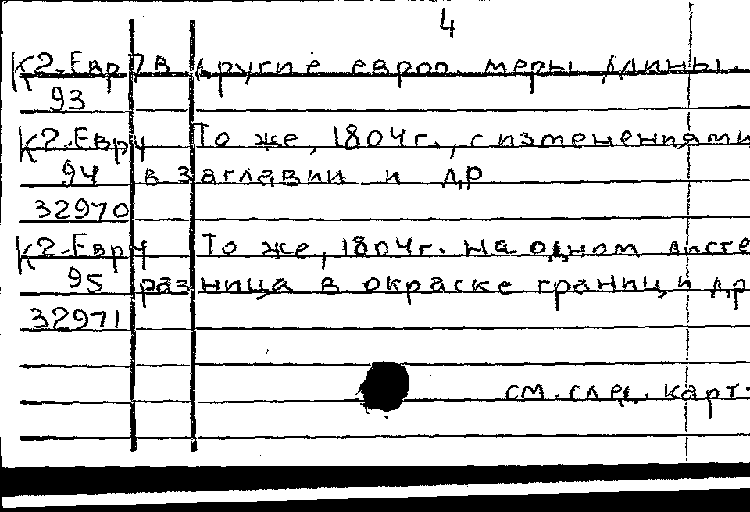 4
К2-Евр 7 в другие европ. меры длины.
93
К2-Евр 4 То же, 1804г., с изменениями
94 в заглавии и др
32970
К2-Евр 4 То же, 1804г. на одном листе
95 разница в окраске границ и др
32971
см. след. карт.